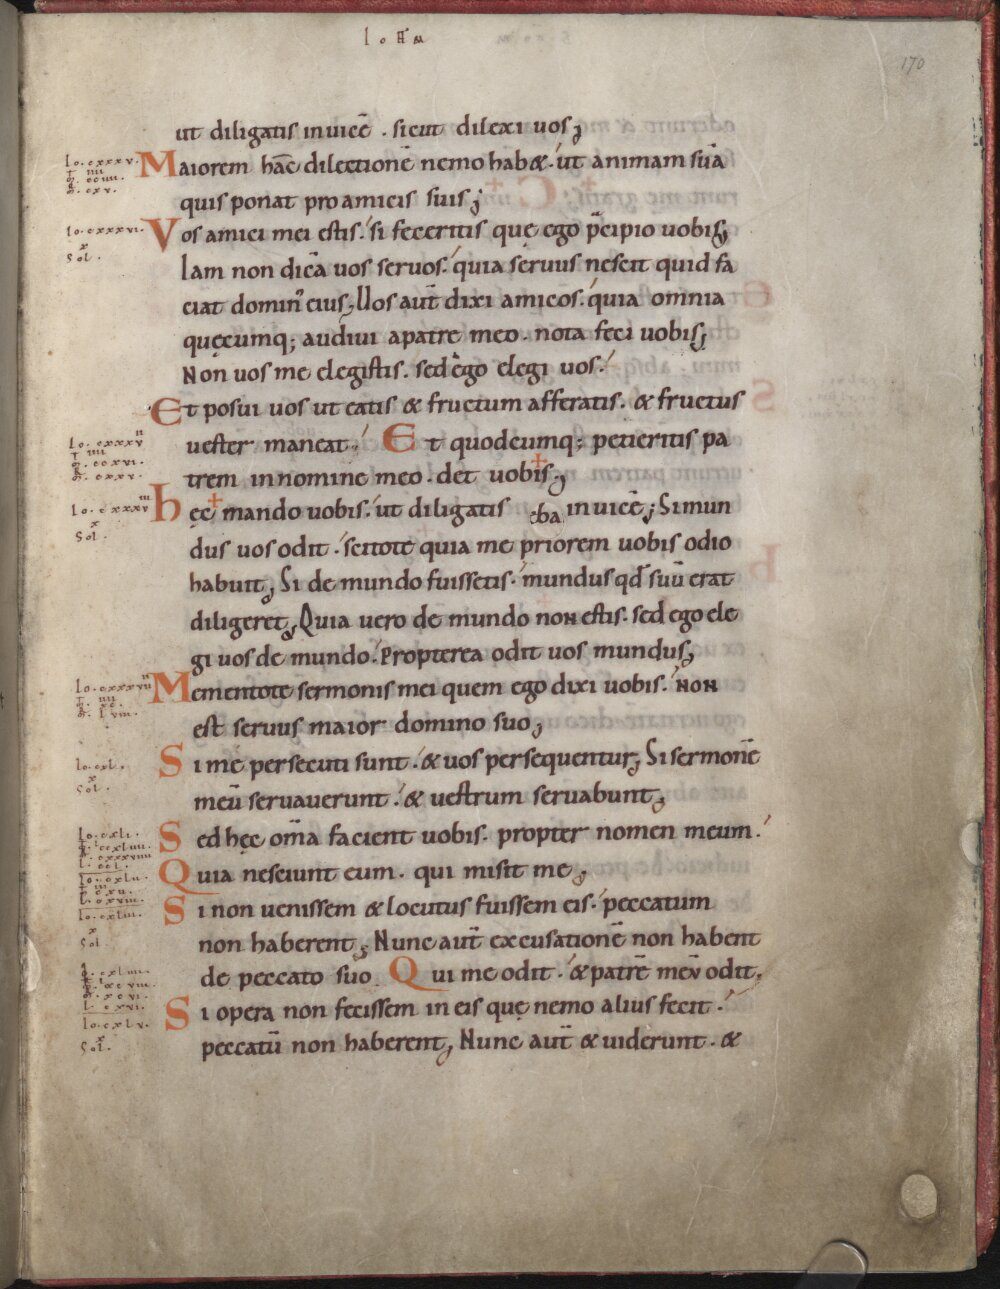 IOHAN
170
ut diligatis inuicē . sicut dilexi uos;
Maiorem hāc dilectionē nemo hab&. ut animam suā
quis ponat pro amicis suis;
Vos amici mei estis. si feceritis quę ego p̄cipio uobis;
Iam non dicā uos seruos. quia seruus nescit quid fa
ciat domin᾽ eius; Uos aut̄ dixi amicos. quia omnia
quęcumq; audiui a patre meo. nota feci uobis;
Non uos me elegistis. sed ego elegi uos.
Et posui uos ut eatis & fructum afferatis. & fructus
uester maneat. Et quodcumq; petieritis pa
trem in nomine meo. det uobis;
hęc mando uobis. ut diligatis inuicē; Si mun
dus uos odit. scitote quia me priorem uobis odio
habuit; Si de mundo fuissetis. mundus qd̄ suū erat
diligeret; Quia uero de mundo non estis. sed ego ele
gi uos de mundo. Propterea odit uos mundus;
Mementote sermonis mei quem ego dixi uobis. non
est seruus maior domino suo;
Si me persecuti sunt. & uos persequentur; Si sermonē
meū seruauerunt. & uestrum seruabunt;
Sed hęc om̄a facient uobis. propter nomen meum.
Quia nesciunt eum. qui misit me;
Si non uenissem & locutus fuissem eis. peccatum
non haberent; Nunc aut̄ excusationē non habent
de peccato suo Qui me odit. & patrē meū odit.
Si opera non fecissem in eis quę nemo alius fecit.
peccatū non haberent; Nunc aut̄ & uiderunt. &